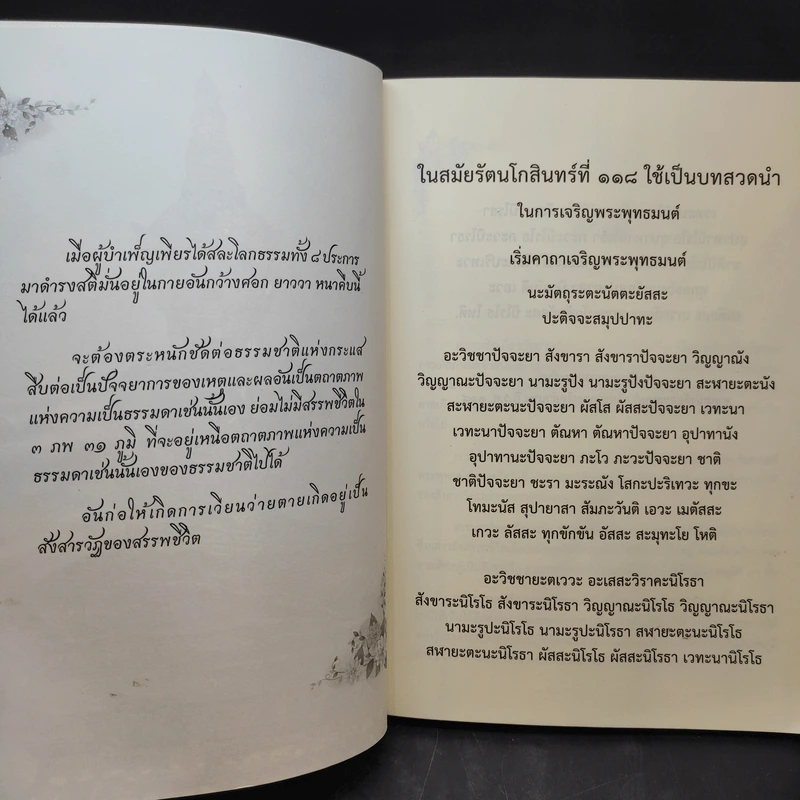 เมื่อผู้บำเพ็ญเพียรได้สละโลกธรรมทั้ง ๘ ประการ
มาดำรงสติมั่นอยู่ในกายอันกว้างศอก ยาววา หนาคืบนี้
ได้แล้ว
จะต้องตระหนักชัดต่อธรรมชาติแห่งกระแส
สืบต่อเป็นปัจจยาการของเหตุและผลอันเป็นตถาตภาพ
แห่งความเป็นธรรมดาเช่นนั้นเอง ย่อมไม่มีสรรพชีวิตใน
๓ ภพ ๓๑ ภูมิ ที่จะอยู่เหนือตถาตภาพแห่งความเป็น
ธรรมดาเช่นนั้นเองของธรรมชาติไปได้
อันก่อให้เกิดการเวียนว่ายตายเกิดอยู่เป็น
สังสารวัฏของสรรพชีวิต
ในสมัยรัตนโกสินทร์ที่ ๑๑๘ ใช้เป็นบทสวดนำ
ในการเจริญพระพุทธมนต์
เริ่มคาถาเจริญพระพุทธมนต์
นะมัตถุระตะนัตตะยัสสะ
ปะติจจะสมุปปาทะ
อะวิชชาปัจจะยา สังขารา สังขาราปัจจะยา วิญญาณัง
วิญญาณะปัจจะยา นามะรูปัง นามะรูปังปัจจะยา สะฬายะตะนัง
สะฬายะตะนะปัจจะยา ผัสโส ผัสสะปัจจะยา เวทะนา
เวทะนาปัจจะยา ตัณหา ตัณหาปัจจะยา อุปาทานัง
อุปาทานะปัจจะยา ภะโว ภะวะปัจจะยา ชาติ
ชาติปัจจะยา ชะรา มะระณัง โสกะปะริเทวะ ทุกขะ
โทมะนัส สุปายาสา สัมภะวันติ เอวะ เมตัสสะ
เกวะ ลัสสะ ทุกขักขัน อัสสะ สะมุทะโย โหติ
อะวิชชายะตเววะ อะเสสะวิราคะนิโรธา
สังขาระนิโรโธ สังขาระนิโรธา วิญญาณะนิโรโธ วิญญาณะนิโรธา
นามะรูปะนิโรโธ นามะรูปะนิโรธา สฬายะตะนะนิโรโธ
สฬายะตะนะนิโรธา ผัสสะนิโรโธ ผัสสะนิโรธา เวทะนานิโรโธ